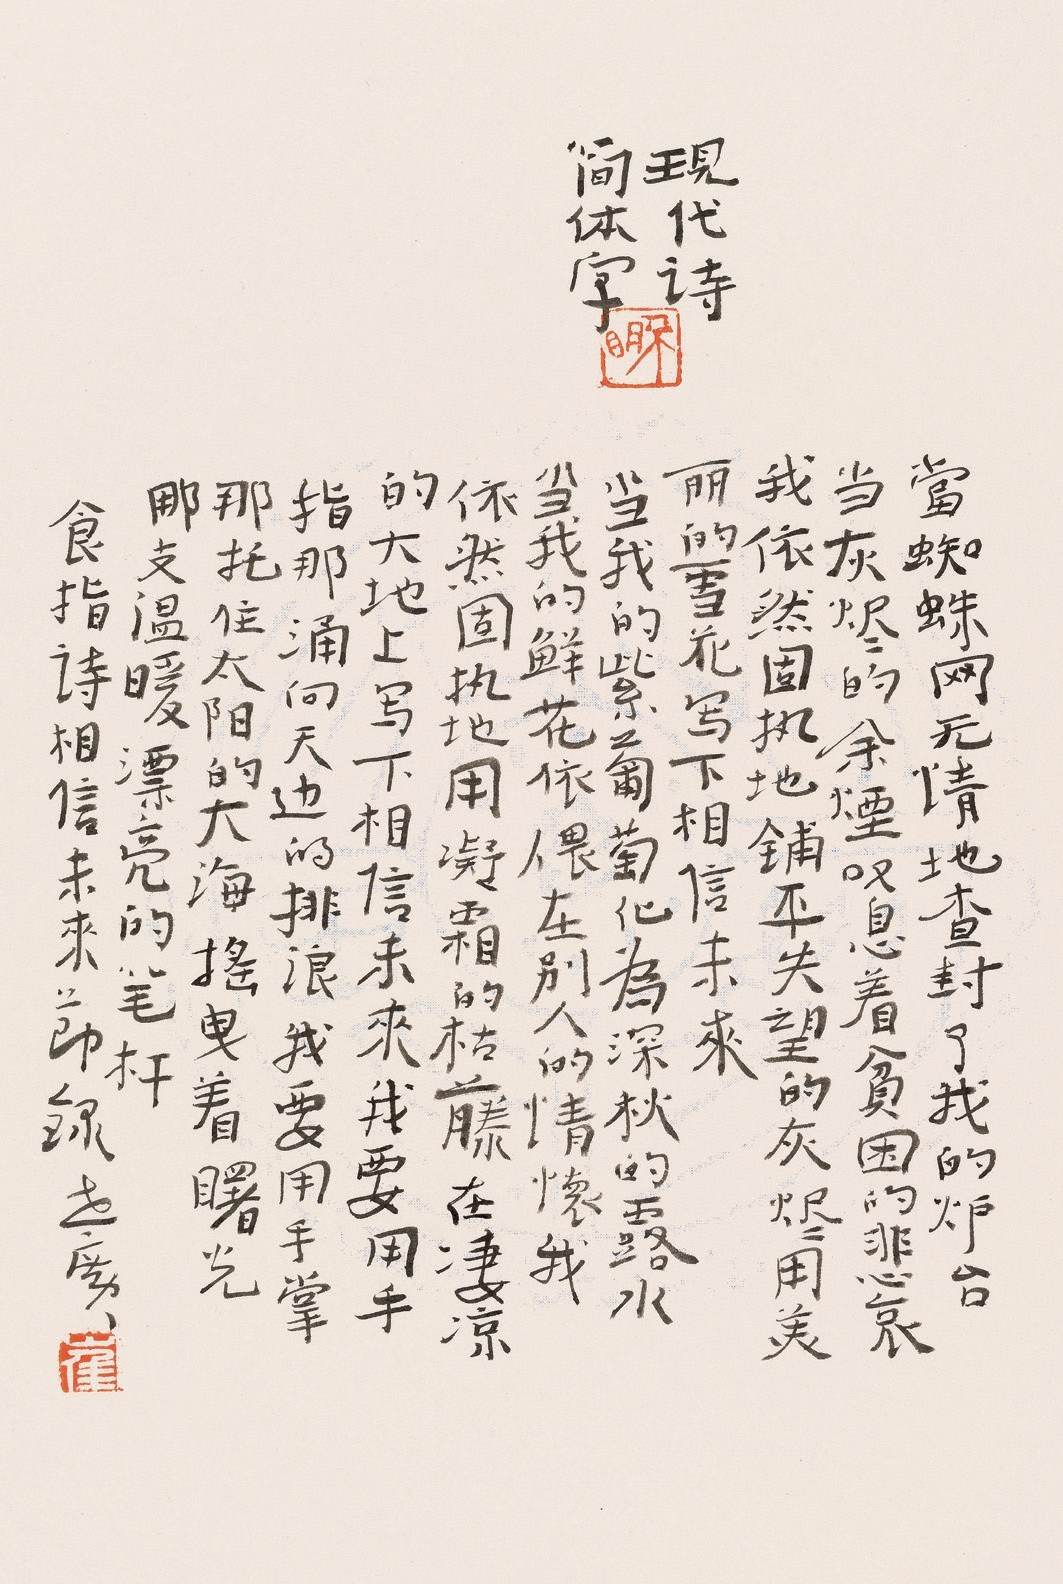 现代诗
简体字
當蜘蛛网无情地查封了我的炉台
当灰烬的余煙叹息着貧困的悲哀
我依然固执地铺平失望的灰烬用美
丽的雪花写下相信未來
当我的紫葡萄化為深秋的露水
当我的鲜花依偎在别人的情懷我
依然固执地用凝霜的枯藤在凄凉
的大地上写下相信未來我要用手
指那涌向天边的排浪我要用手掌
那托住太阳的大海搖曳着曙光
那支温暖漂亮的笔杆
食指诗相信未來节録
崔